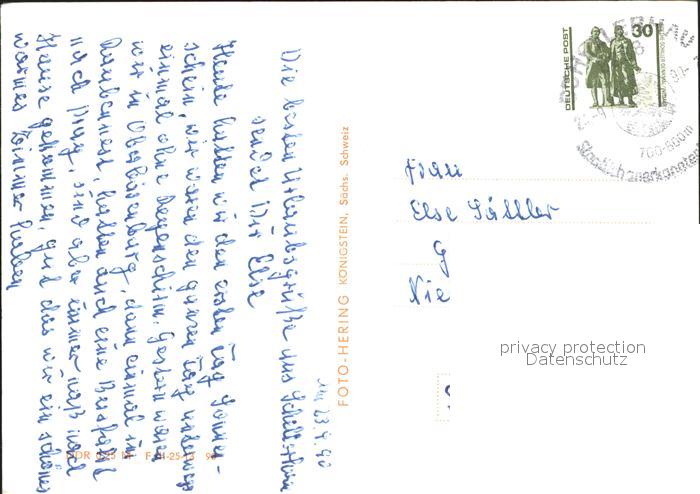 am 23.4.90
Die besten Urlaubsgrüße aus
sendet Dir Else
Heute hatten wir den ersten Tag Sonnen-
schein, wir waren den ganzen Tag unterwegs
einmal ohne Regenschirm. Gestern waren
wir in Oberbärenburg, dann einmal in
hatten auch eine Busfahrt
nach Prag, sind aber immer naß nach
Hause gekommen, gut das wir ein schönes
warmes Zimmer haben
FOTO-HERING KÖNIGSTEIN, Sächs. Schweiz
DEUTSCHE POST
30
700-800
Staatlich anerkannter
Frau
Else Sättler
G
Nie
privacy protection
Datenschutz